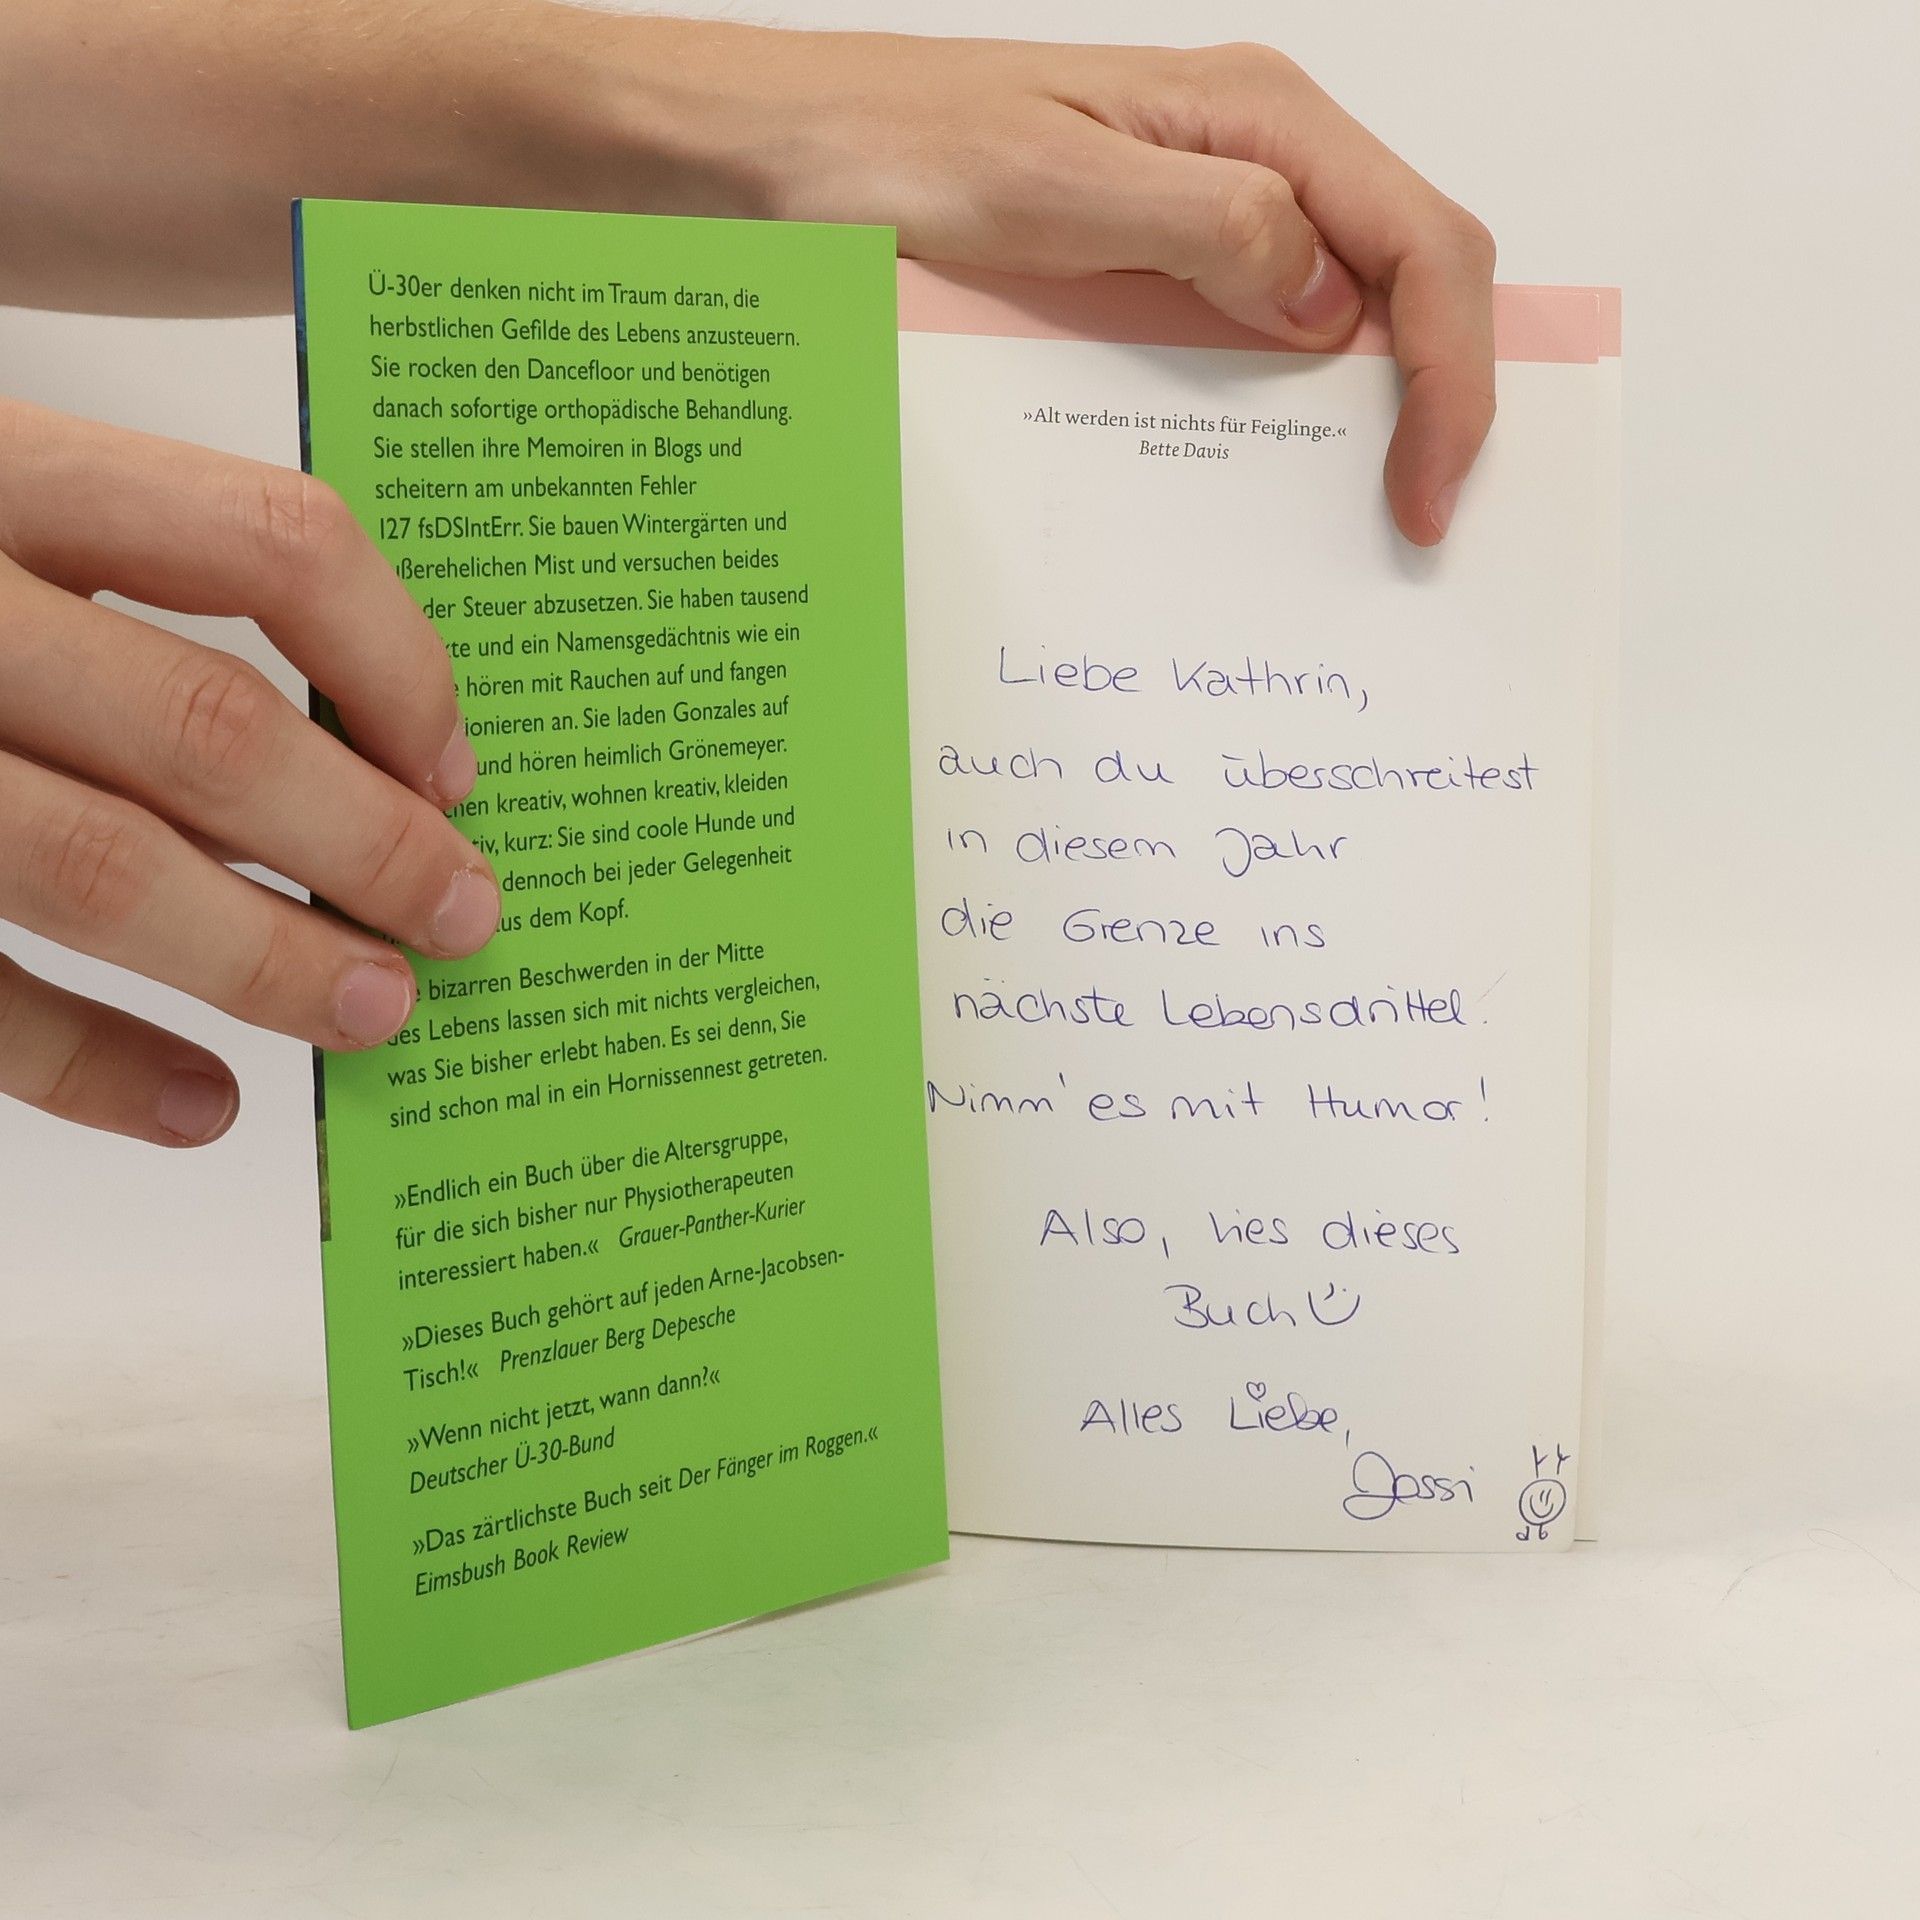 Ü-30er denken nicht im Traum daran, die
herbstlichen Gefilde des Lebens anzusteuern.
Sie rocken den Dancefloor und benötigen
danach sofortige orthopädische Behandlung.
Sie stellen ihre Memoiren in Blogs und
scheitern am unbekannten Fehler
127 fsDSIntErr. Sie bauen Wintergärten und
ußerehelichen Mist und versuchen beides
der Steuer abzusetzen. Sie haben tausend
kte und ein Namensgedächtnis wie ein
hören mit Rauchen auf und fangen
ionieren an. Sie laden Gonzales auf
und hören heimlich Grönemeyer.
chen kreativ, wohnen kreativ, kleiden
tiv, kurz: Sie sind coole Hunde und
dennoch bei jeder Gelegenheit
us dem Kopf.
e bizarren Beschwerden in der Mitte
des Lebens lassen sich mit nichts vergleichen,
was Sie bisher erlebt haben. Es sei denn, Sie
sind schon mal in ein Hornissennest getreten.
»Endlich ein Buch über die Altersgruppe,
für die sich bisher nur Physiotherapeuten
interessiert haben.« Grauer-Panther-Kurier
»Dieses Buch gehört auf jeden Arne-Jacobsen-
Tisch!« Prenzlauer Berg Depesche
»Wenn nicht jetzt, wann dann?«
Deutscher Ü-30-Bund
»Das zärtlichste Buch seit Der Fänger im Roggen.«
Eimsbush Book Review
»Alt werden ist nichts für Feiglinge.«
Bette Davis
Liebe Kathrin,
auch du überschreitest
in diesem Jahr
die Grenze ins
nächste Lebensdrittel!
Nimm' es mit Humor!
Also, lies dieses
Buch
Alles Liebe,
Jassi